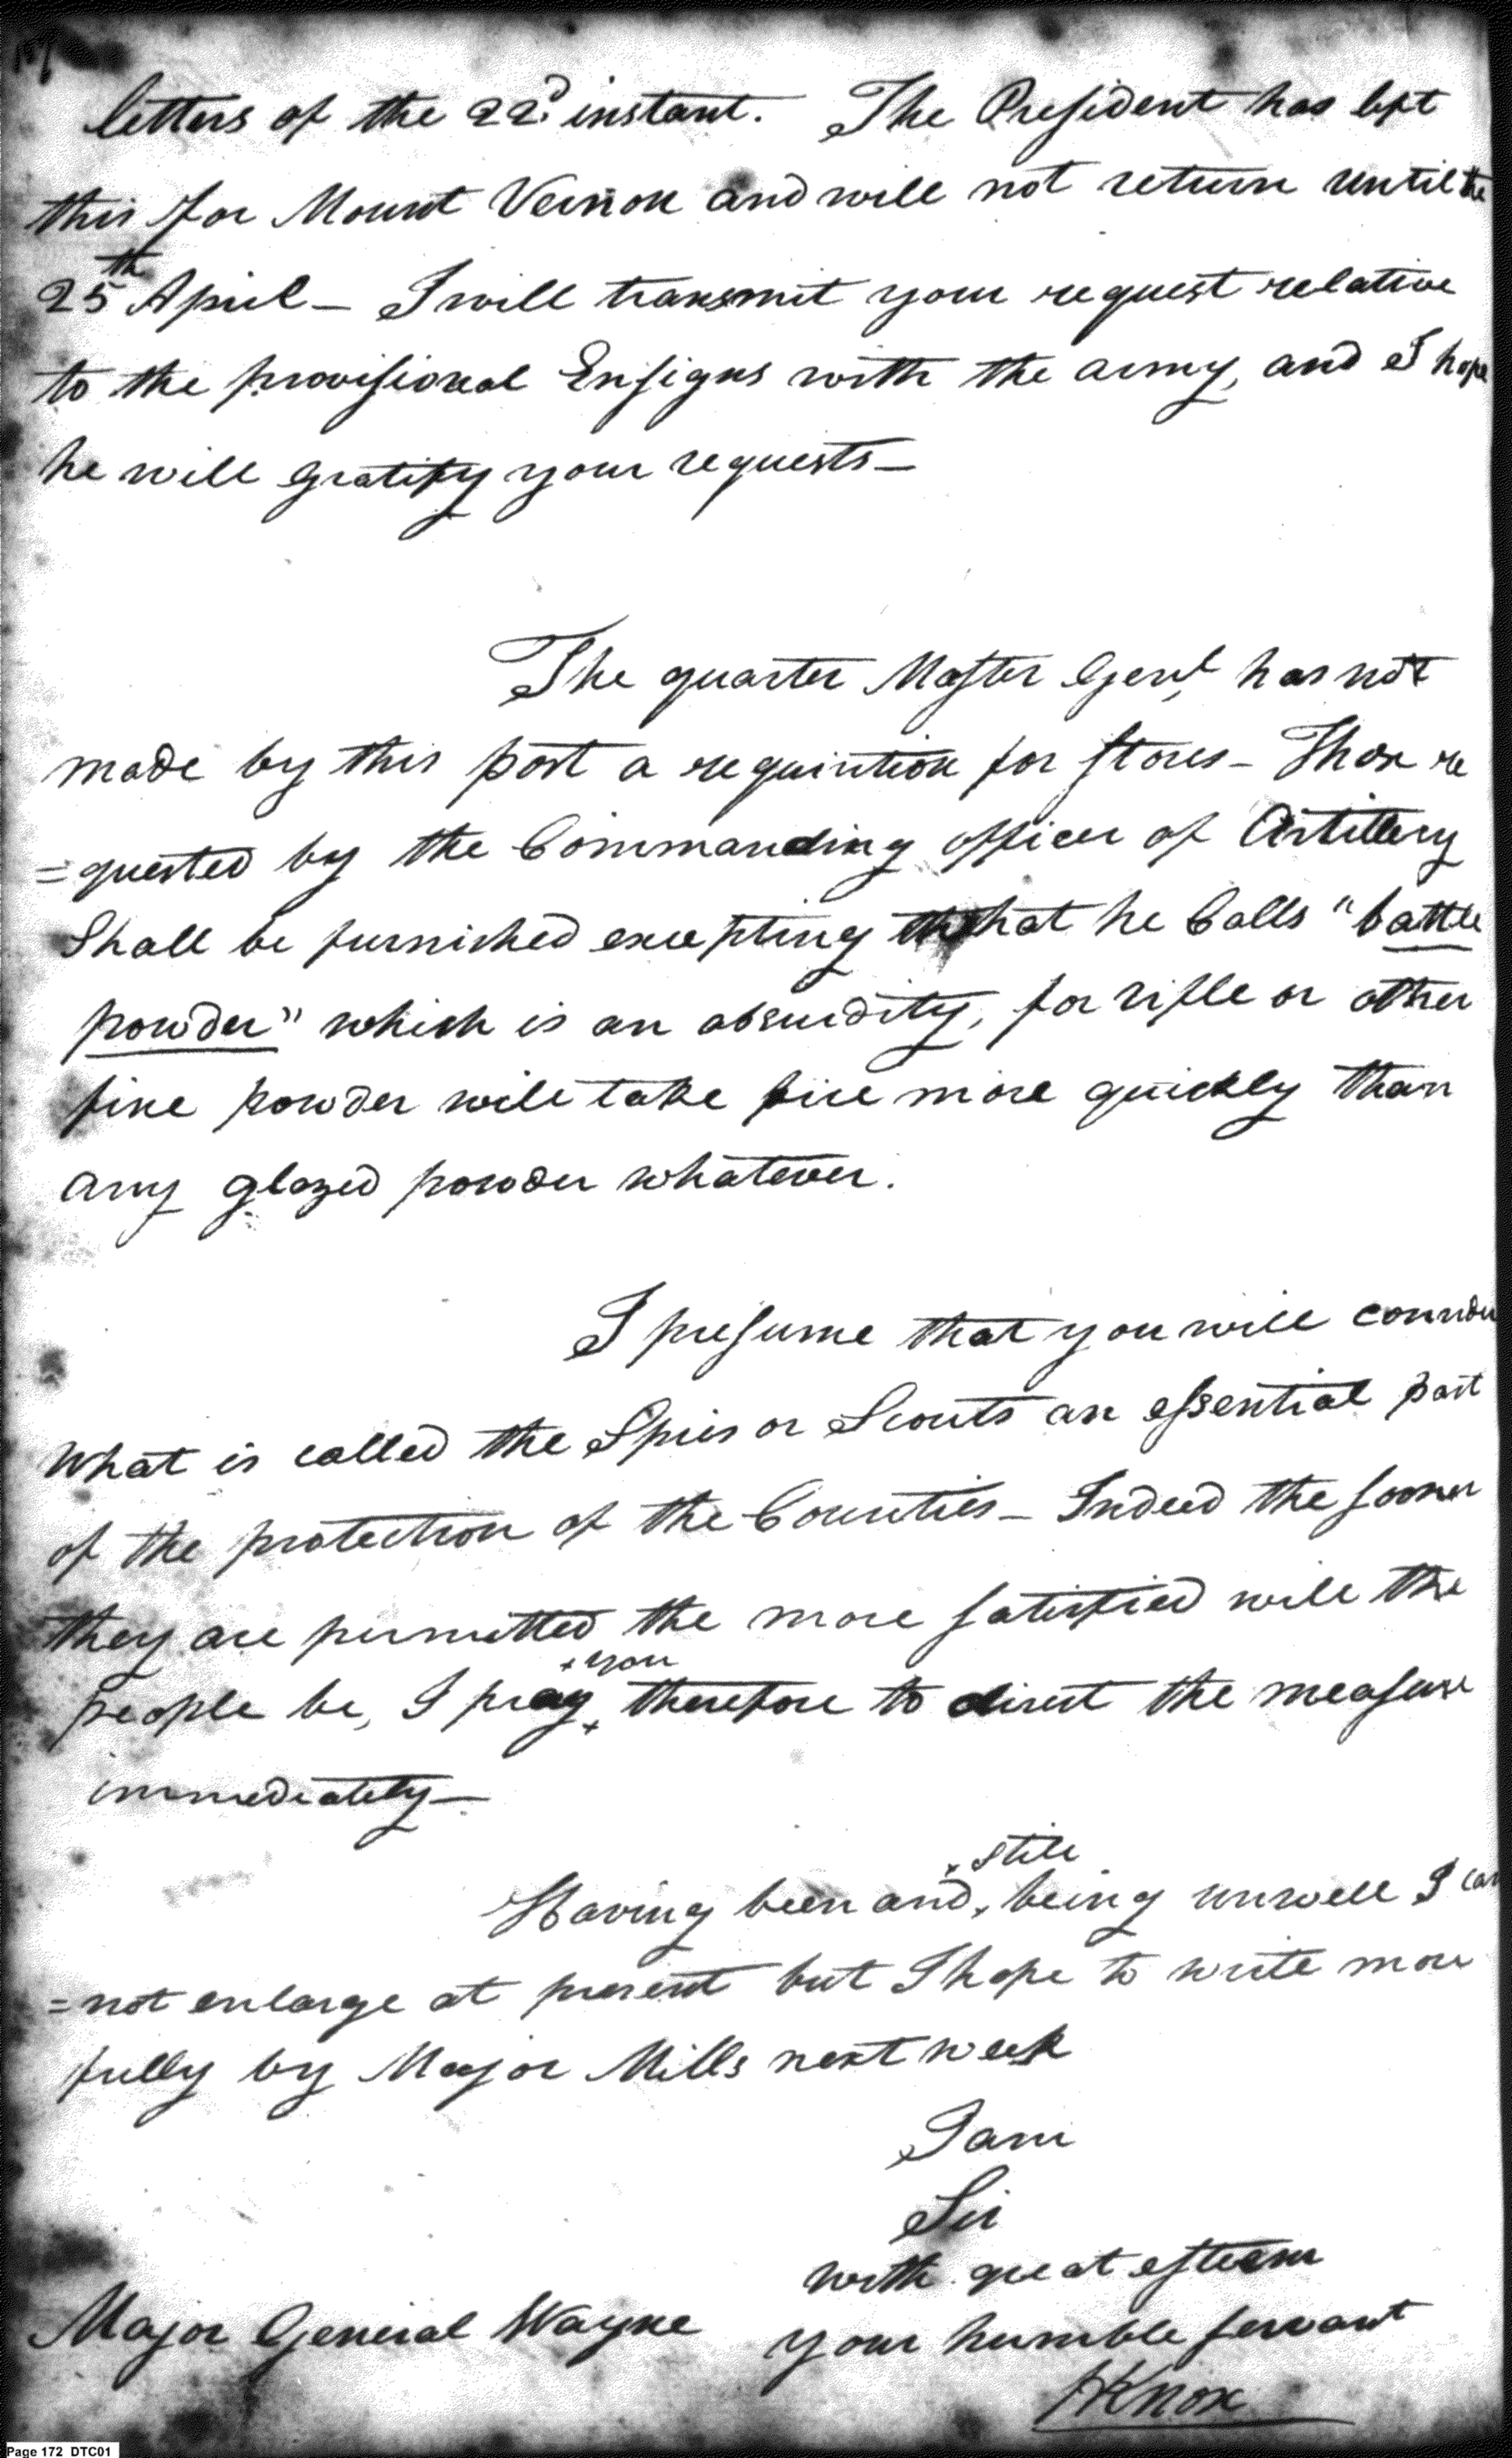 letters of the 22d instant. The President has left
this for Mount Vernon and will not return until the
25th April — I will transmit your request relative
to the provisional Ensigns with the army, and I hope
he will gratify your requests —
The quarter Master Genl, has not
made by this post a requisition for stores — Those re
=quested by the Commanding officer of Artillery
Shall be furnished excepting what he Calls "battle
powder" which is an absurdity, for rifle or other
fine powder will take fire more quickly than
any glazed powder whatever.
I presume that you will consider
What is called the Spies or Scouts an essential part
of the protection of the Counties — Indeed the sooner
they are permitted the more satisfied will the
people be, I pray you therefore to direct the measure
immediately —
Having been and still being unwell I can
=not enlarge at present but I hope to write more
fully by Major Mills next week
I am
Sir
with great esteem
Major General Wayne your humble servant
HKnox
Page 172 DTC01